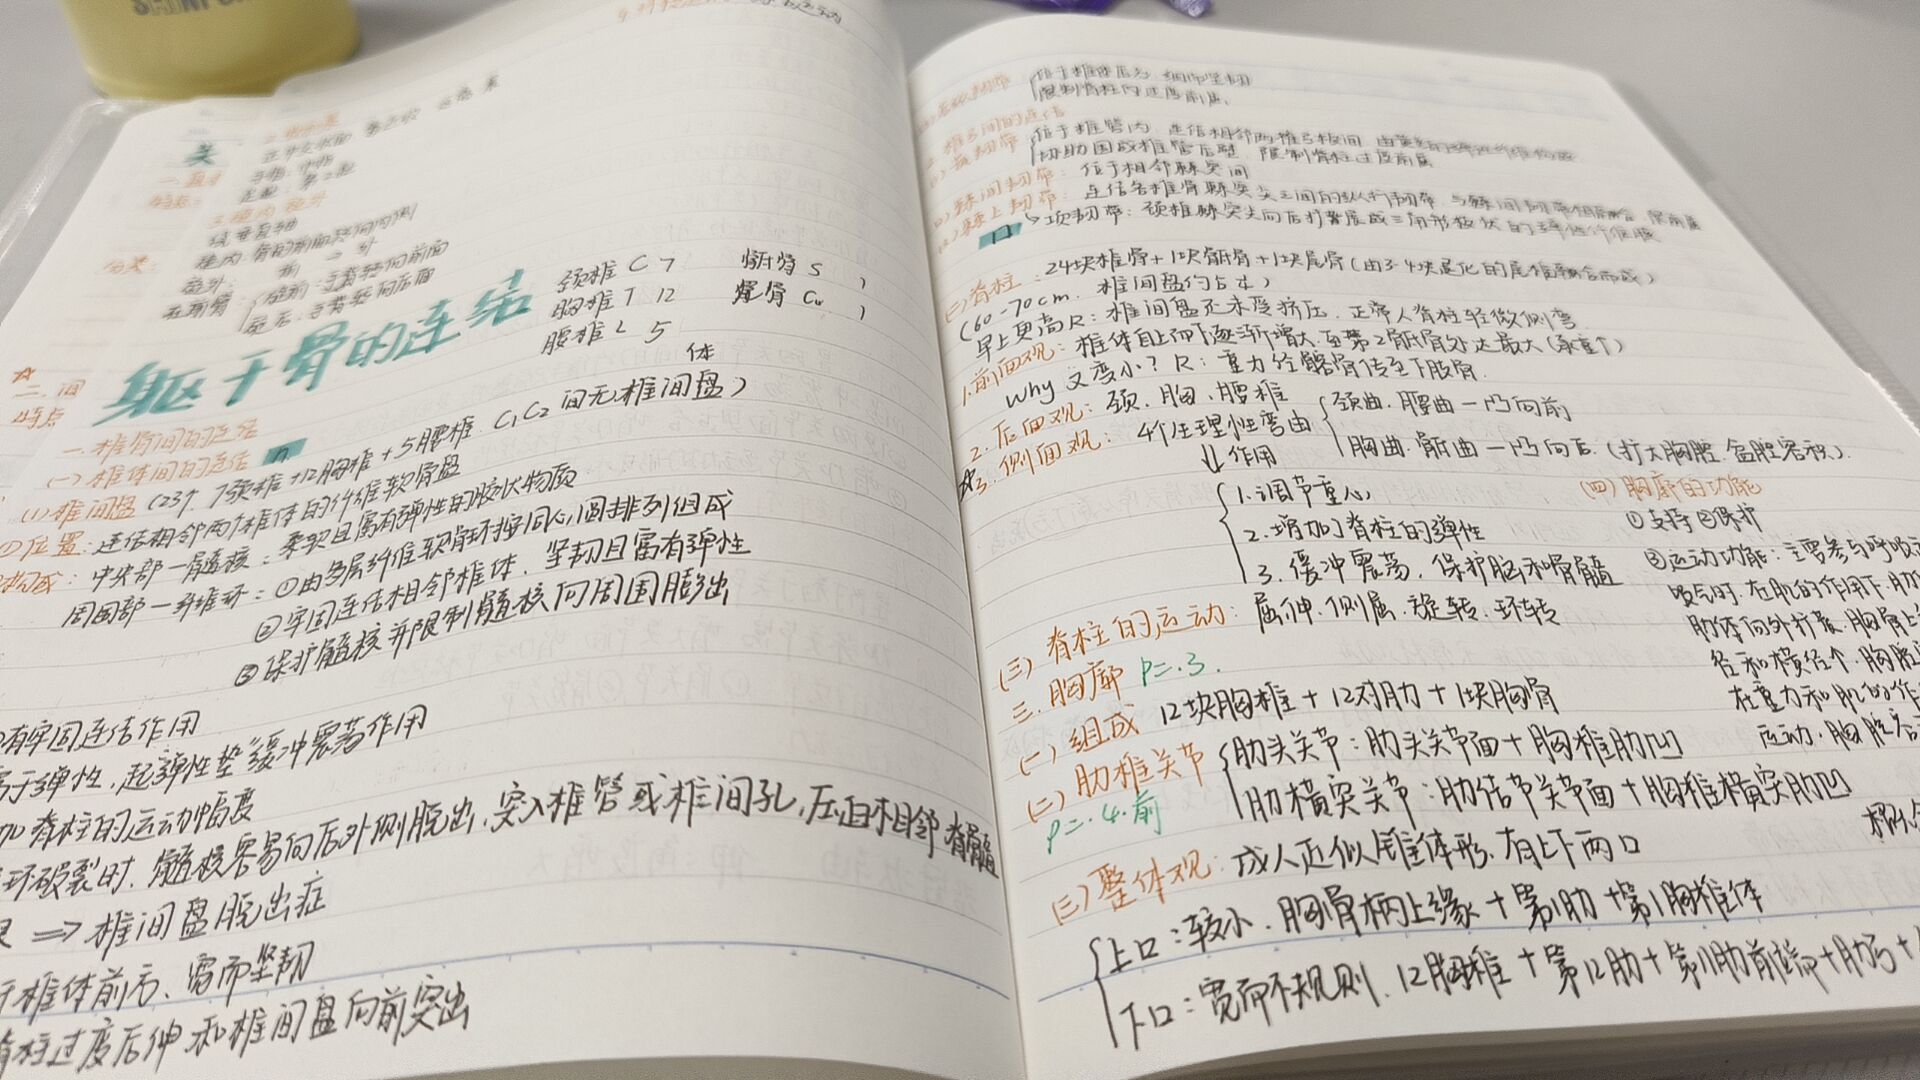 躯干骨的连结
颈椎 C 7
胸椎 T 12
腰椎 L 5
骶骨 S
尾骨 Co
二、间
特点
一、椎骨间的连结
(一) 椎体间的连结
(1) 椎间盘 (23个. 7颈椎+12胸椎+5腰椎. C₁C₂ 间无椎间盘)
体
①位置: 连结相邻两个椎体的纤维软骨盘
构成: 中央部—髓核: 柔软且富有弹性的胶状物质
周围部—纤维环: ①由多层纤维软骨环按同心圆排列组成
②牢固连结相邻椎体. 坚韧且富有弹性
③保护髓核并限制髓核向周围膨出
有牢固连结作用
富于弹性, 起“弹性垫”缓冲震荡作用
加脊柱的运动幅度
环破裂时. 髓核容易向后外侧脱出. 突入椎管或椎间孔, 压迫相邻脊髓
⇒ 椎间盘脱出症
于椎体前方、宽而坚韧
脊柱过度后伸和椎间盘向前突出
位于椎体后方. 细而坚韧
限制脊柱的过度前屈.
2. 椎弓间的连结
黄韧带 位于椎管内. 连结相邻两椎弓板间.
协助围成椎管后壁. 限制脊柱过度前屈
棘间韧带: 位于相邻棘突间
棘上韧带: 连结各椎骨棘突尖之间的纵行韧带.
项韧带: 颈椎棘突尖向后扩展成三角形板状的弹性纤维膜
(二) 脊柱: 24块椎骨+1块骶骨+1块尾骨(由3-4块退化的尾椎融合而成)
(60-70cm. 椎间盘约占¼)
早上更高R: 椎间盘还未受挤压. 正常人脊柱轻微侧弯.
1.前面观: 椎体自上而下逐渐增大. 至第2骶骨处达最大 (承重↑)
why 又变小? R: 重力经髂骨传至下肢骨.
2. 后面观: 颈. 胸. 腰椎
☆3. 侧面观: 4个生理性弯曲 { 颈曲. 腰曲—凸向前
胸曲. 骶曲—凸向后. (扩大胸腔. 盆腔容积).
⇓作用
1.调节重心
2.增加脊柱的弹性
3. 缓冲震荡. 保护脑和脊髓
(三) 脊柱的运动: 屈伸. 侧屈. 旋转. 环转
三. 胸廓 P=.3.
(一) 组成 12块胸椎+12对肋+1块胸骨
(二) 肋椎关节 { 肋头关节: 肋头关节面+胸椎肋凹
P=.4.前
肋横突关节: 肋结节关节面+胸椎横突肋凹
(三) 整体观: 成人近似圆锥体形. 有上下两口
上口: 较小. 胸骨柄上缘+第1肋+第1胸椎体
下口: 宽而不规则. 12胸椎+第12肋+第11肋前端+肋弓+
(四) 胸廓的功能
①支持 ②保护
③运动功能: 主要参与呼吸
吸气时. 在肌的作用下. 肋
肋体向外扩展. 胸骨上
径和横径↑. 胸腔
在重力和肌的作
运动. 胸腔容